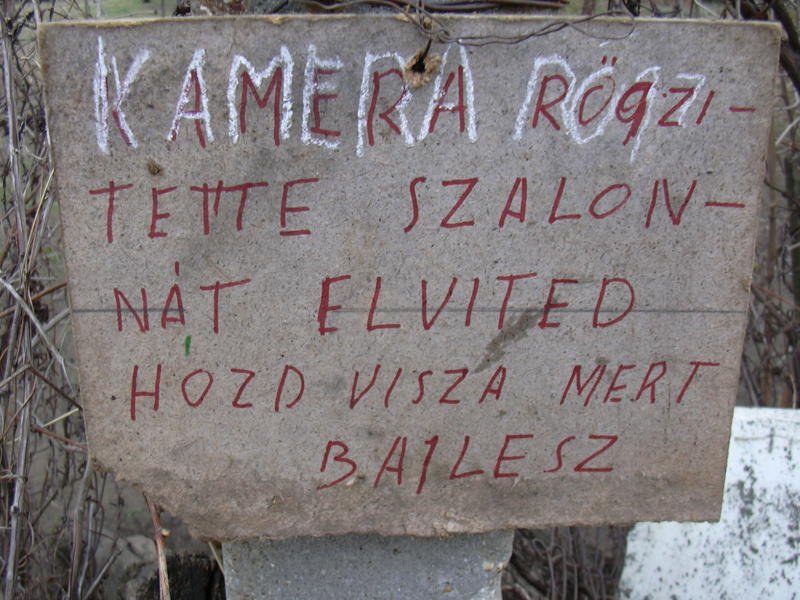 KAMERA RÖGZI-
TETTE SZALON-
NÁT ELVITED
HOZD VISZA MERT
BAJLESZ